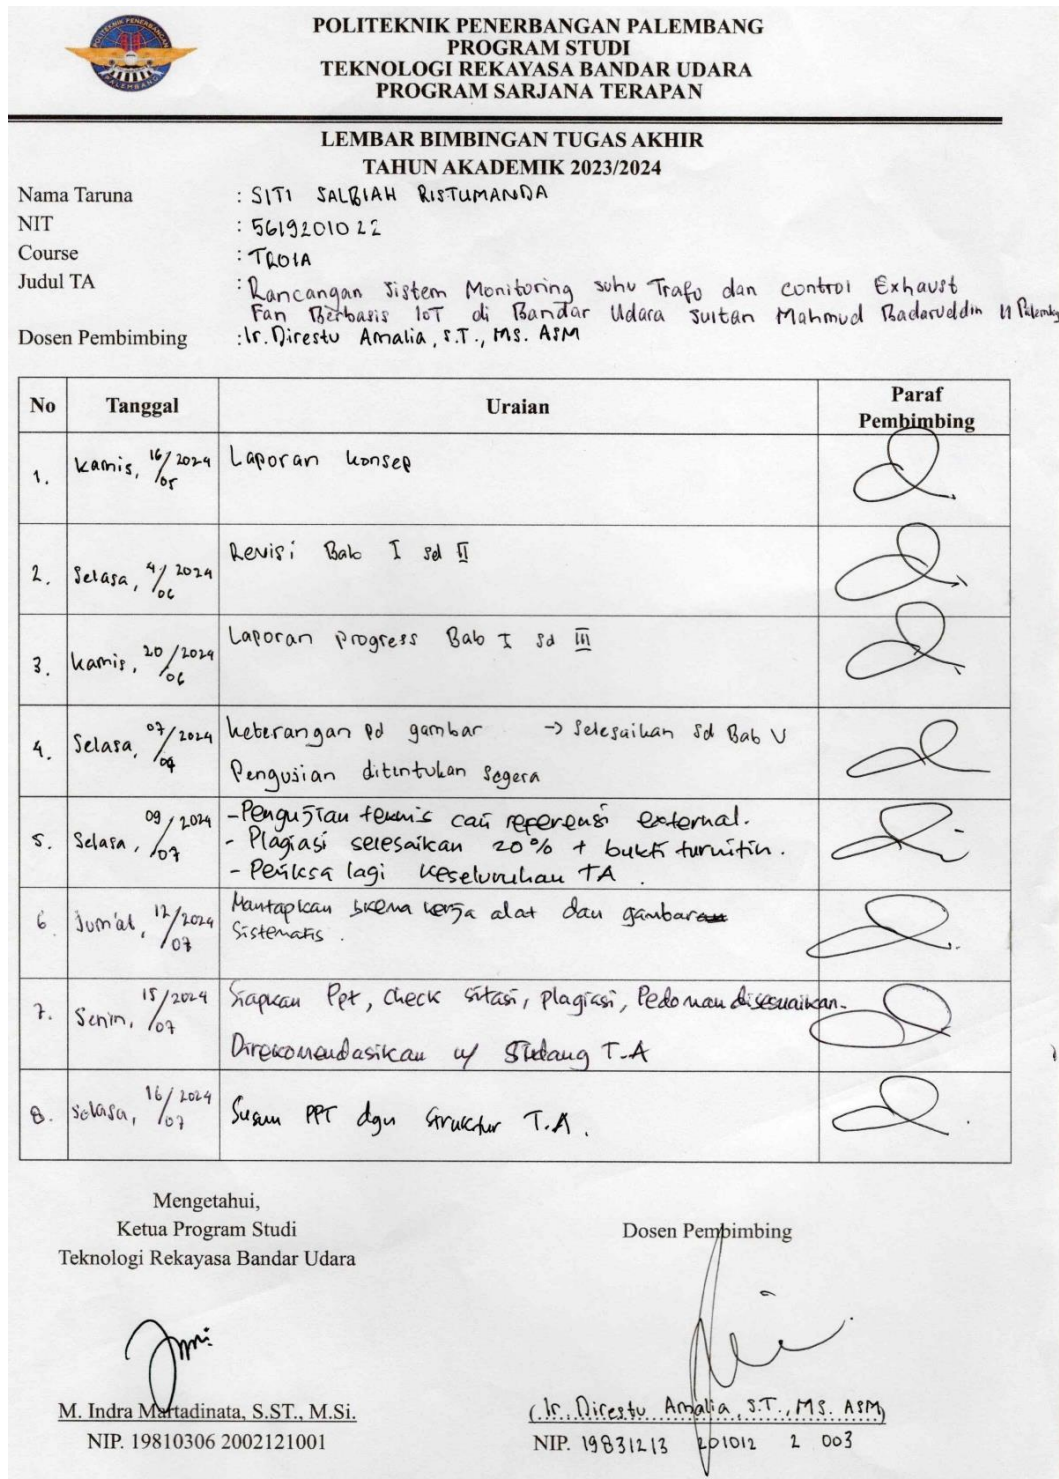 POLITEKNIK PENERBANGAN PALEMBANG
PROGRAM STUDI
TEKNOLOGI REKAYASA BANDAR UDARA
PROGRAM SARJANA TERAPAN
LEMBAR BIMBINGAN TUGAS AKHIR
TAHUN AKADEMIK 2023/2024
Nama Taruna : SITI SALBIAH RISTUMANDA
NIT : 5619201022
Course : TROIA
Judul TA : Rancangan Sistem Monitoring suhu Trafo dan control Exhaust
Fan Berbasis IoT di Bandar Udara Sultan Mahmud Badaruddin II Palembang
Dosen Pembimbing : Ir. Direstu Amalia, S.T., MS. ASM
No Tanggal Uraian Paraf Pembimbing
1. Kamis, 16/05 2024 Laporan konsep
2. Selasa, 4/06 2024 Revisi Bab I sd II
3. Kamis, 20/06 2024 Laporan progress Bab I sd III
4. Selasa, 2024 keterangan pd gambar -> Selesaikan sd Bab V
Pengusian ditentukan segera
5. Selasa, 09/07 2024 - Pengujian teknis cari referensi external.
- Plagiasi selesaikan 20% + bukti turnitin.
- Periksa lagi keseluruhan TA.
6 Jum'at, 12/07 2024 Mantapkan skema kerja alat dan gambar
Sistematis.
7. Senin, 15/07 2024 Siapkan Ppt, check sitasi, plagiasi, Pedoman disesuaikan.
Direkomendasikan u/ Sidang T.A
8. Selasa, 16/07 2024 Susun PPT dgn struktur T.A.
Mengetahui,
Ketua Program Studi
Teknologi Rekayasa Bandar Udara
Dosen Pembimbing
M. Indra Martadinata, S.ST., M.Si.
NIP. 19810306 2002121001
(Ir. Direstu Amalia, S.T., MS. ASM)
NIP. 19831213 201012 2 003